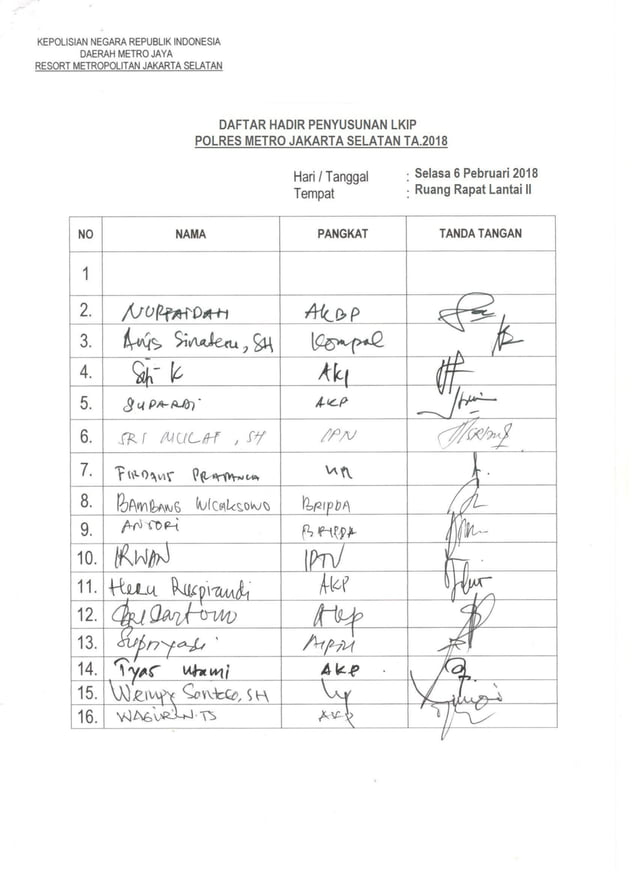 KEPOLISIAN NEGARA REPUBLIK INDONESIA
DAERAH METRO JAYA
RESORT METROPOLITAN JAKARTA SELATAN
DAFTAR HADIR PENYUSUNAN LKIP
POLRES METRO JAKARTA SELATAN TA.2018
Hari / Tanggal : Selasa 6 Pebruari 2018
Tempat : Ruang Rapat Lantai II
NO NAMA PANGKAT TANDA TANGAN
1
2. NURFAIDAH AKBP
3. Kompol
4. AKP
5. SUPARDI AKP
6. SRI MULAT, SH
7. FIRDAUS
8. BAMBANG WICAKSONO BRIPDA
9. ANSORI BRIPDA
10. IRWAN IPTU
11. Heru AKP
12. AKP
13. Supriyadi
14. Tyas Utami AKP
15. SH
16. AKP